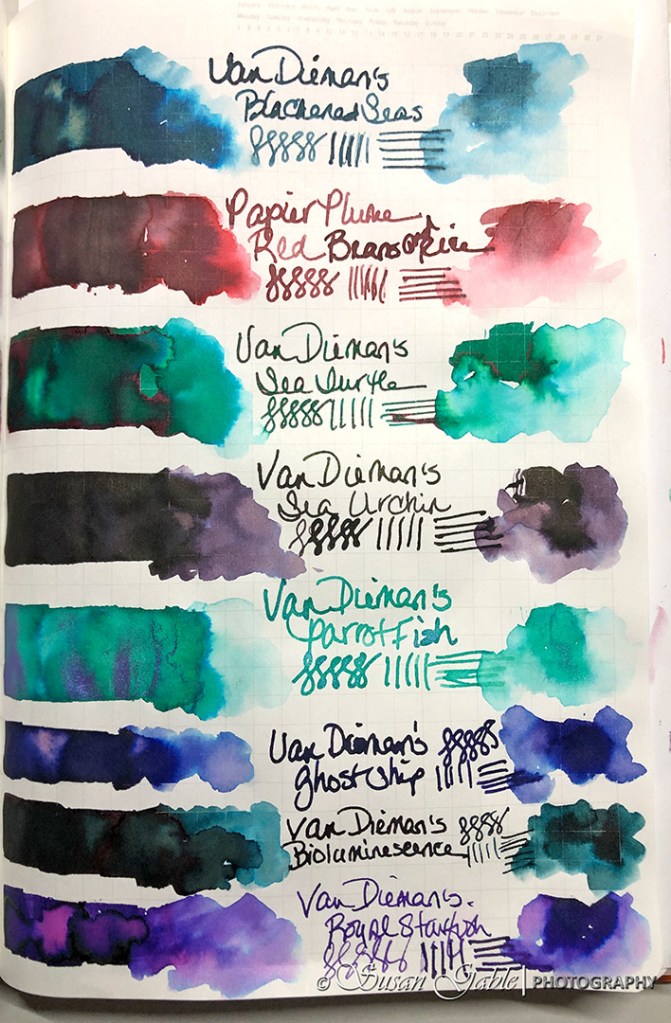 Van Dieman's
Blackened Seas
Papier Plume
Red Beans &
Van Dieman's
Sea Turtle
Van Dieman's
Sea Urchin
Van Dieman's
Parrot Fish
Van Dieman's
Ghost Ship
Van Dieman's
Bioluminescence
Van Dieman's
Royal Starfish
© Susan Gable | PHOTOGRAPHY